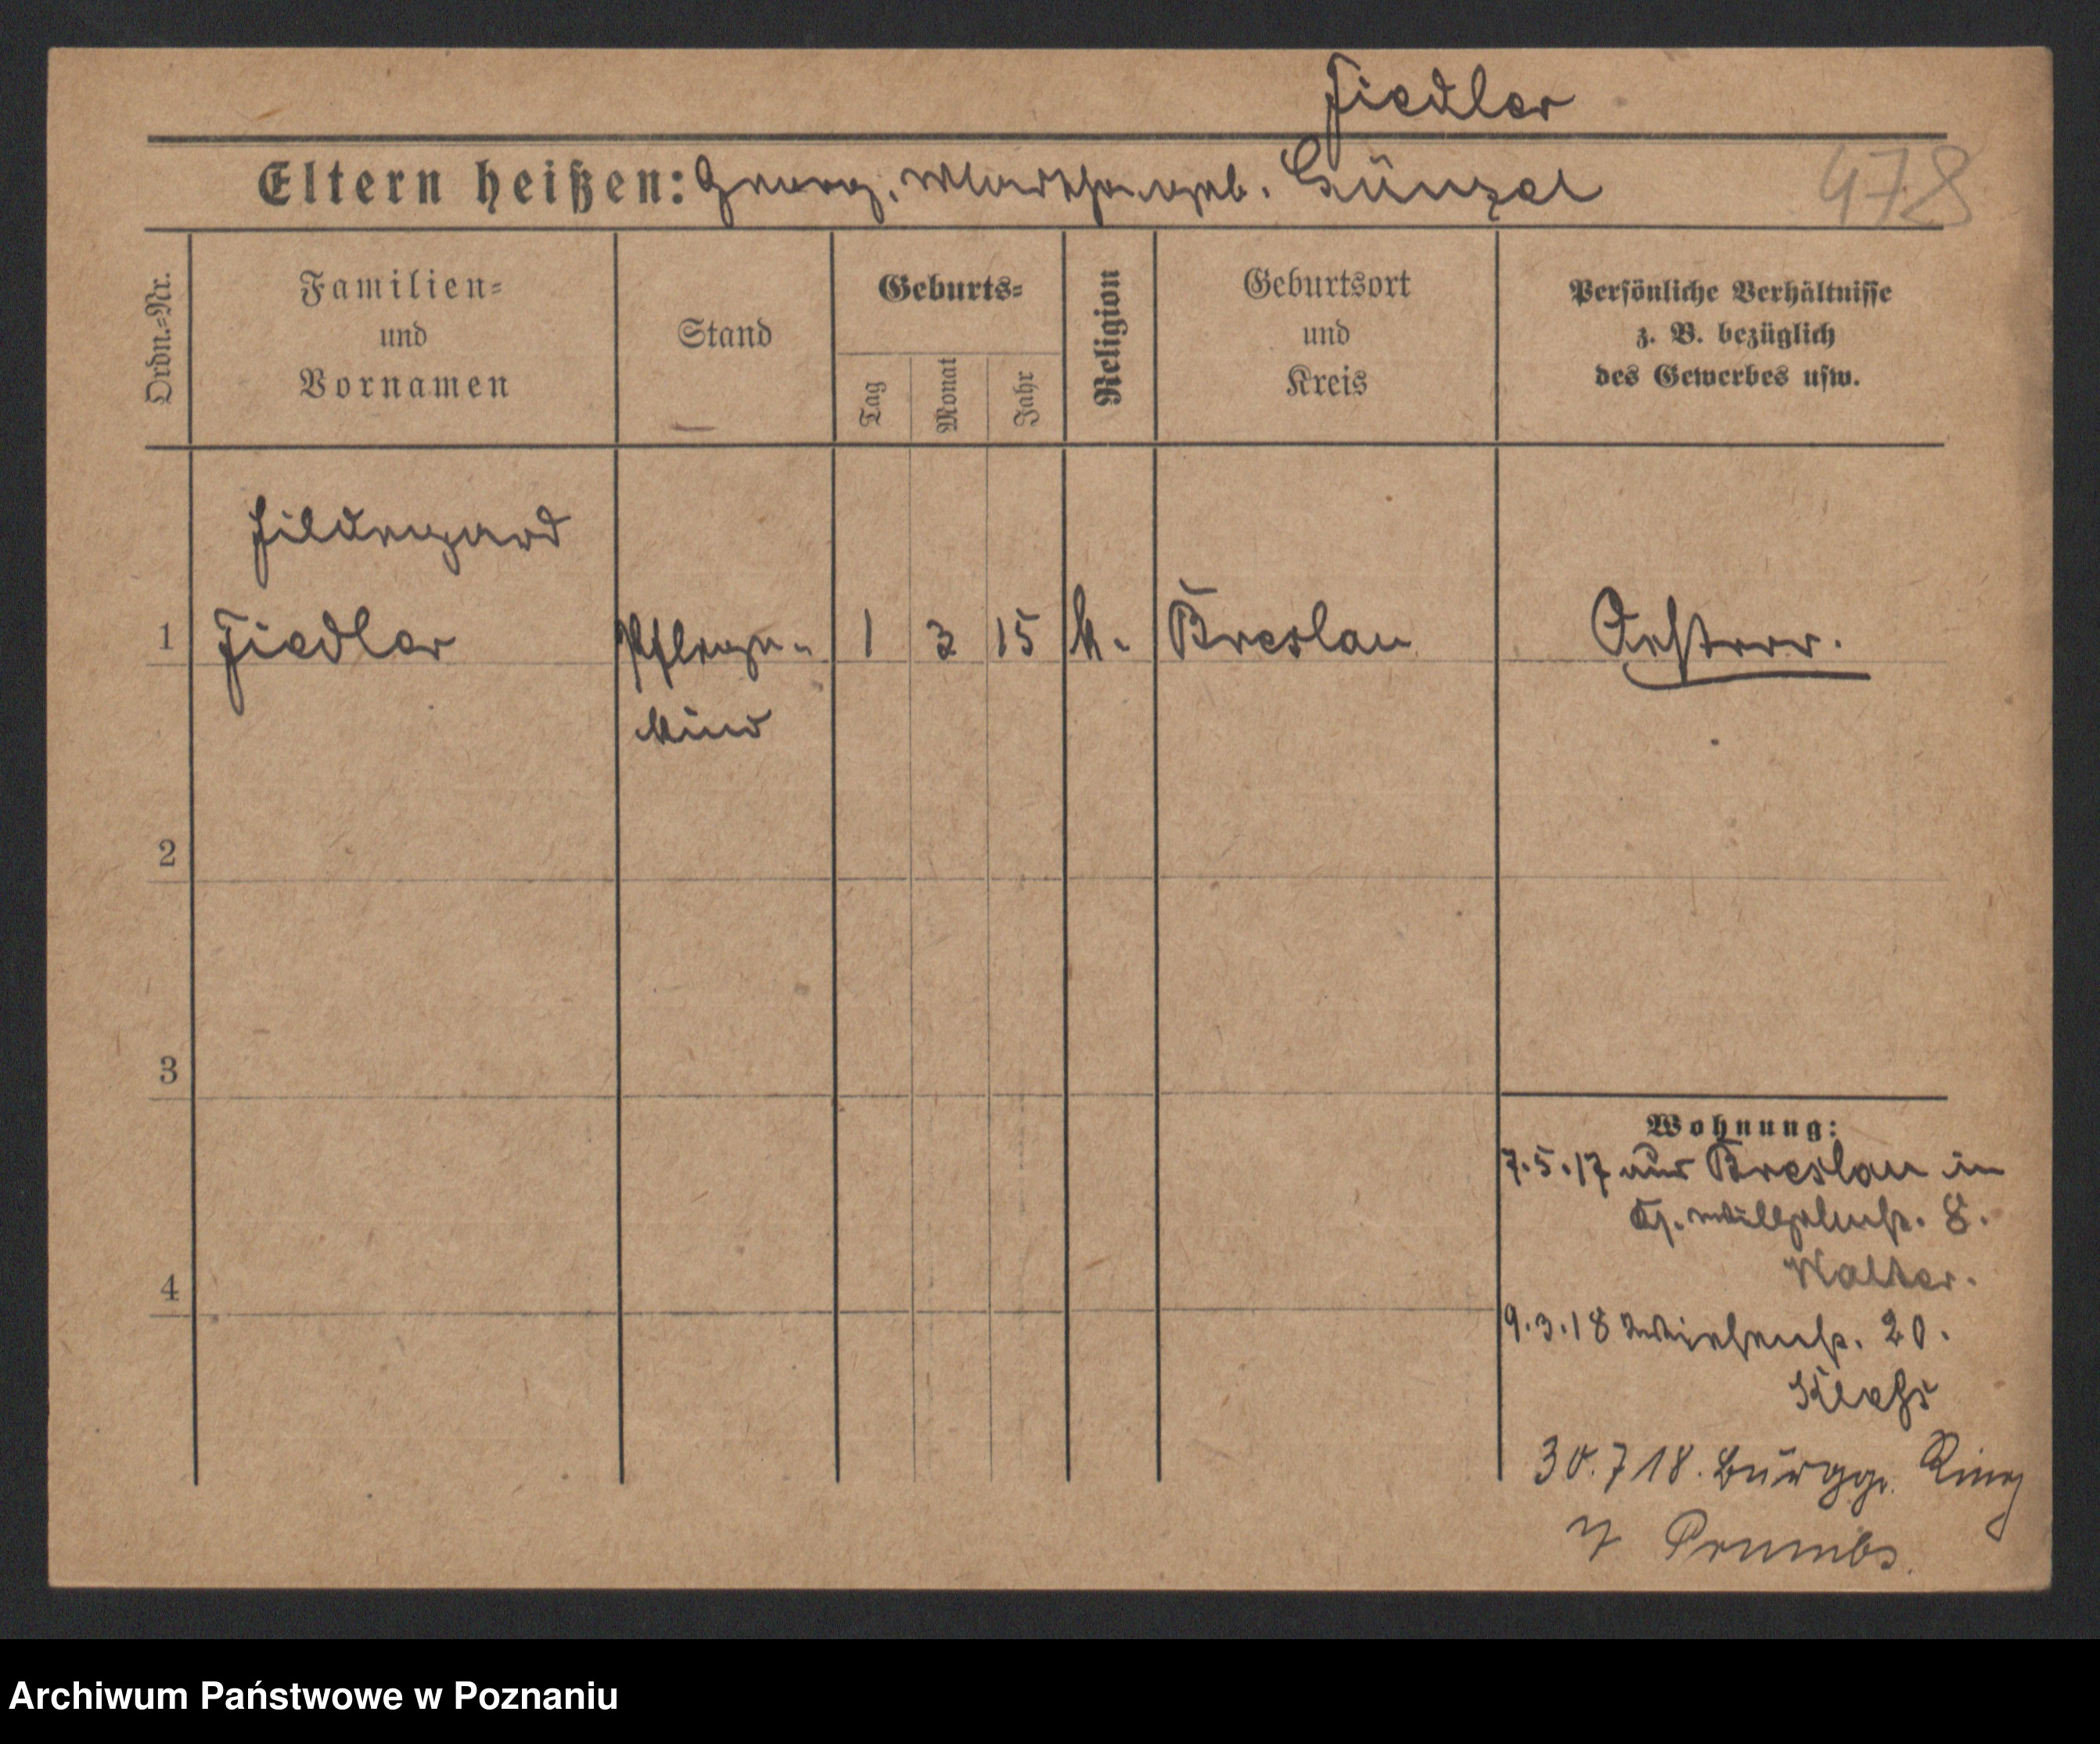 Fiedler
Eltern heißen: Georg, Martha geb. Günzel
478
Ordn.=Nr.
Familien=
und
Vornamen
Stand
Geburts=
Tag
Monat
Jahr
Religion
Geburtsort
und
Kreis
Persönliche Verhältnisse
z. B. bezüglich
des Gewerbes usw.
Hildegard
1 Fiedler Pflege- 1 3 15 k. Breslau Oesterr.
kind
2
3
4
Wohnung:
7.5.17 aus Breslau in
Wilhelmstr. 8.
Walter.
9.3.18 Wiesenstr. 20.
30.7 18. Burggr. Ring
7
Archiwum Państwowe w Poznaniu